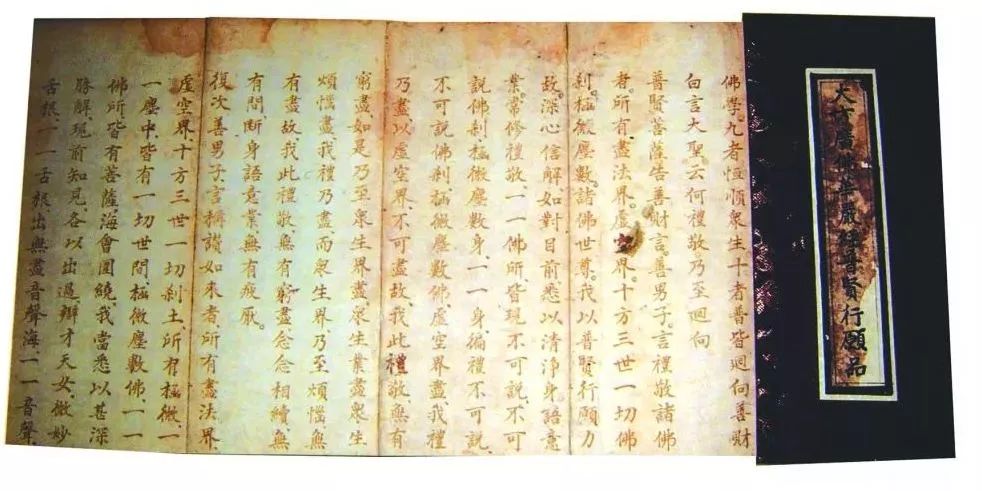 大方廣佛華嚴經普賢行願品
佛學九者恆順衆生十者普皆迴向善財
白言大聖云何禮敬乃至迴向
普賢菩薩告善財言。善男子。言禮敬諸佛
者。所有盡法界虛空界。十方三世一切佛
剎極微塵數諸佛世尊。我以普賢行願力
故。深心信解如對目前悉以清淨身語意
業。常修禮敬、一一佛所皆現不可說、不可
說佛剎、極微塵數身、一一身、徧禮不可說、
不可說佛剎、極微塵數佛、虛空界盡我禮
乃盡以虛空界不可盡故、我此禮敬無有
窮盡如是乃至衆生界盡衆生業盡衆生
煩惱盡、我禮乃盡而衆生界乃至煩惱無
有盡故、我此禮敬無有窮盡念念相續無
有間斷身語意業無有疲厭。
復次善男子言稱讚如來者、所有盡法界
虛空界十方三世一切剎土、所有極微一
一塵中、皆有一切世間、極微塵數佛一一
佛所皆有菩薩海會圍繞我當悉以甚深
勝解、現前知見、各以出過辯才天女、微妙
舌根、一一舌根、出無盡音聲海一一音聲